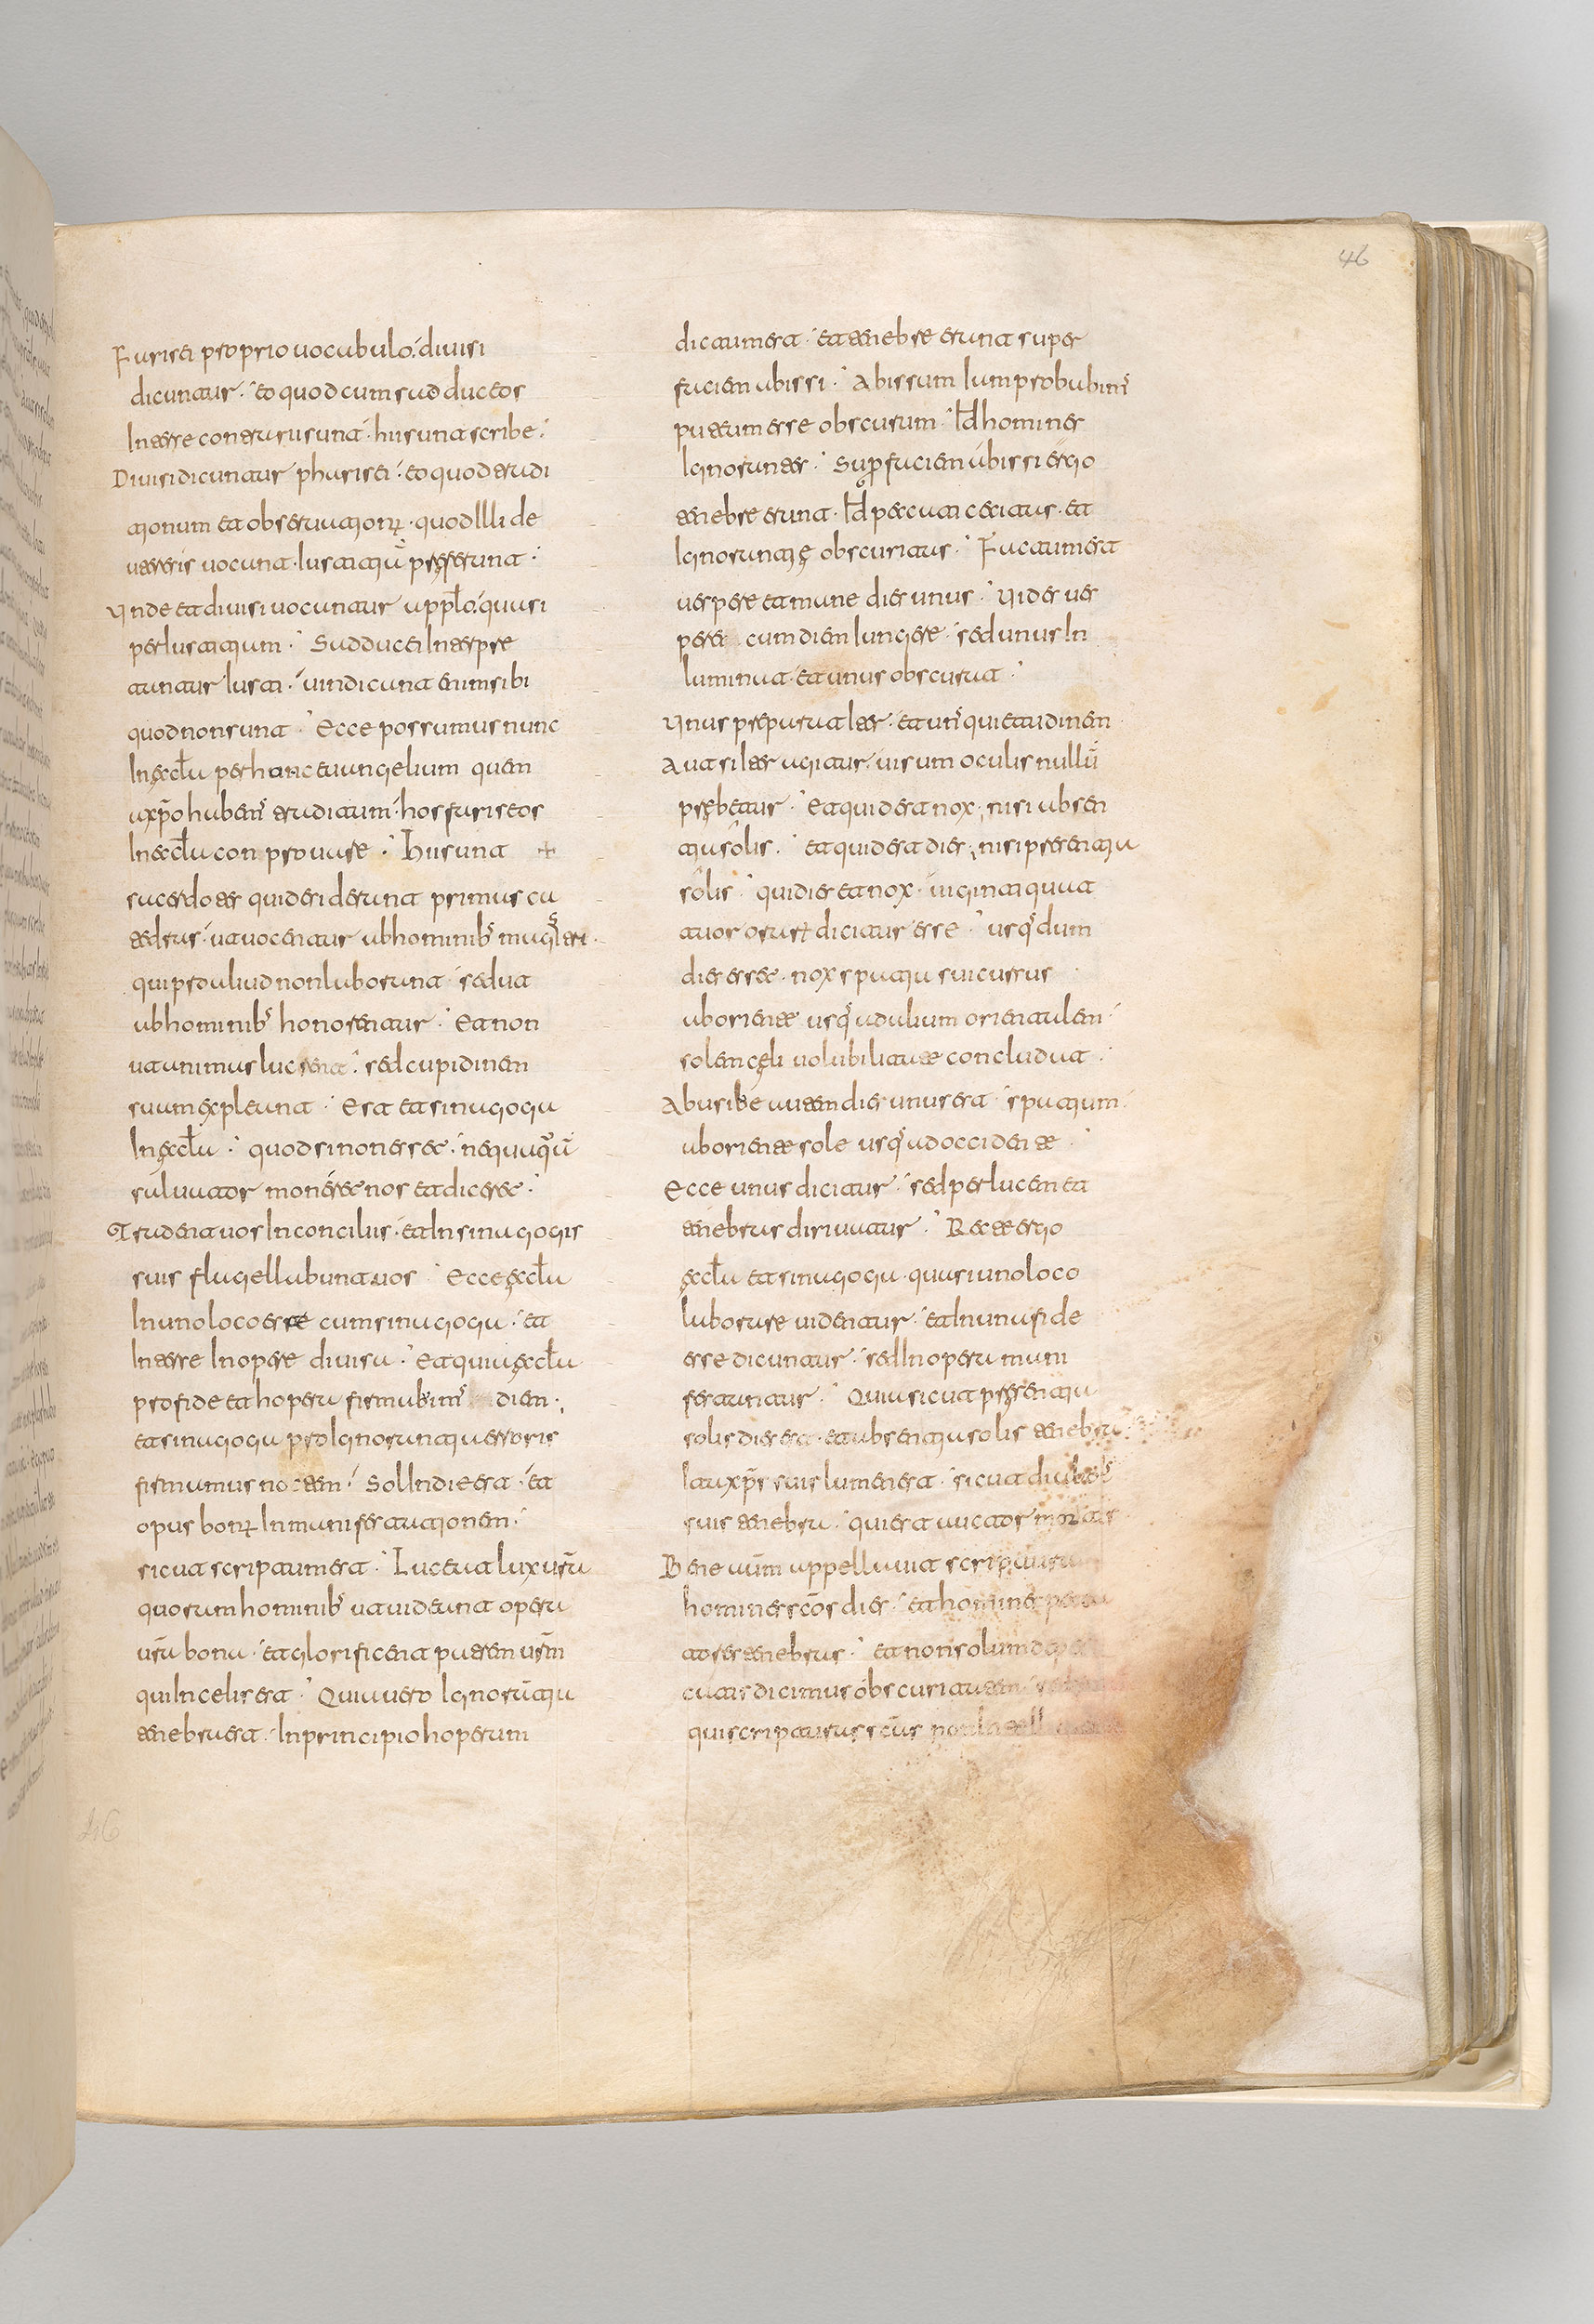 Farisei proprio uocabulo diuisi
dicuntur · eo quod cum sadduceos
Inter se contrarii sunt · hii sunt scribe ·
Diuisi dicuntur pharisei · eo quod tradi
tionum et obseruationum · quod Illi de
uteris uocant · Iustitiam preferunt ·
Unde et diuisi uocantur a pplo · quasi
per Iustitiam · Sadducei Interpre
tantur Iusti · uindicant enim sibi
quod non sunt · Ecce possumus nunc
In ęccla per hanc euangelium quem
a xpo habem traditum · hos fariseos
In eccla conprouare · Hii sunt +
sacerdotes qui desiderant primas ca
tedras · ut uocentur ab hominib magistri ·
qui pro aliud non laborant · sed ut
ab hominib honorentur · Et non
ut animas lucrent · sed cupidinem
suam expleant · Est et sinagoga
In ęccla · quod si non esset · nequaqua
saluator moneret nos et diceret ·
Tradent uos In conciliis · et In sinagogis
suis flagellabunt uos · Ecce ęccla
In uno loco esse cum sinagoga · et
Inter se In opere diuisa · Et quia ęccla
pro fide et hopera firmabim diem ·
et sinagoga pro Ignorantia erroris
firmamus noctem · Sol In die est · et
opus bonum In manifestationem ·
sicut scriptum est · Luceat lux usra
quoram hominib ut uideant opera
usra bona · et glorificent patrem usrm
qui In celis est · Quia uero Ignorantia
tenebra est · In principio hoperum
dictum est · et tenebre erant super
faciem abissi · Abissum Iam probabim
puteum esse obscurum · Id homines
Ignorantes · Super faciem abissi ergo
tenebre erant · Id peccati cecitas · et
Ignorantię obscuritas · Factum est
uespere et mane dies unus · Uides ues
pere cum diem Iungere · sed unus In
luminat · et unus obscurat ·
Unus preparat Iter · et un quietudinem
At si Iter agitur · uisum oculis nullu
prębetur · Et quid est nox · nisi absen
tia solis · et quid est dies · nisi presentia
solis · qui dies et nox · uiginti quat
tuor orarum dicitur esse · usq dum
dies esset · nox spatia sui cursus
ab oriente usq ad alium orientalem ·
solem cęli uolubilitate concludat ·
Ab usibe autem dies unus est · spatium
ab oriente sole usq ad occidente ·
Ecce unus dicitur · sed per lucem et
tenebras diriuatur · Recte ergo
ęccla et sinagoga · quasi uno loco
laborare uidentur · et In una fide
esse dicuntur · sed In opera mani
festantur · Quia sicut presentia
solis dies est · et absentia solis tenebra
Ita xps suis lumen est · sicut diabol
suis tenebra · qui est auctor mortis
Bene autm appellauit scriptura
homines scos dies · et homines pecca
tores tenebras · et non solum
catis dicimus obscuritatem ·
qui scripturas scas non
46
46